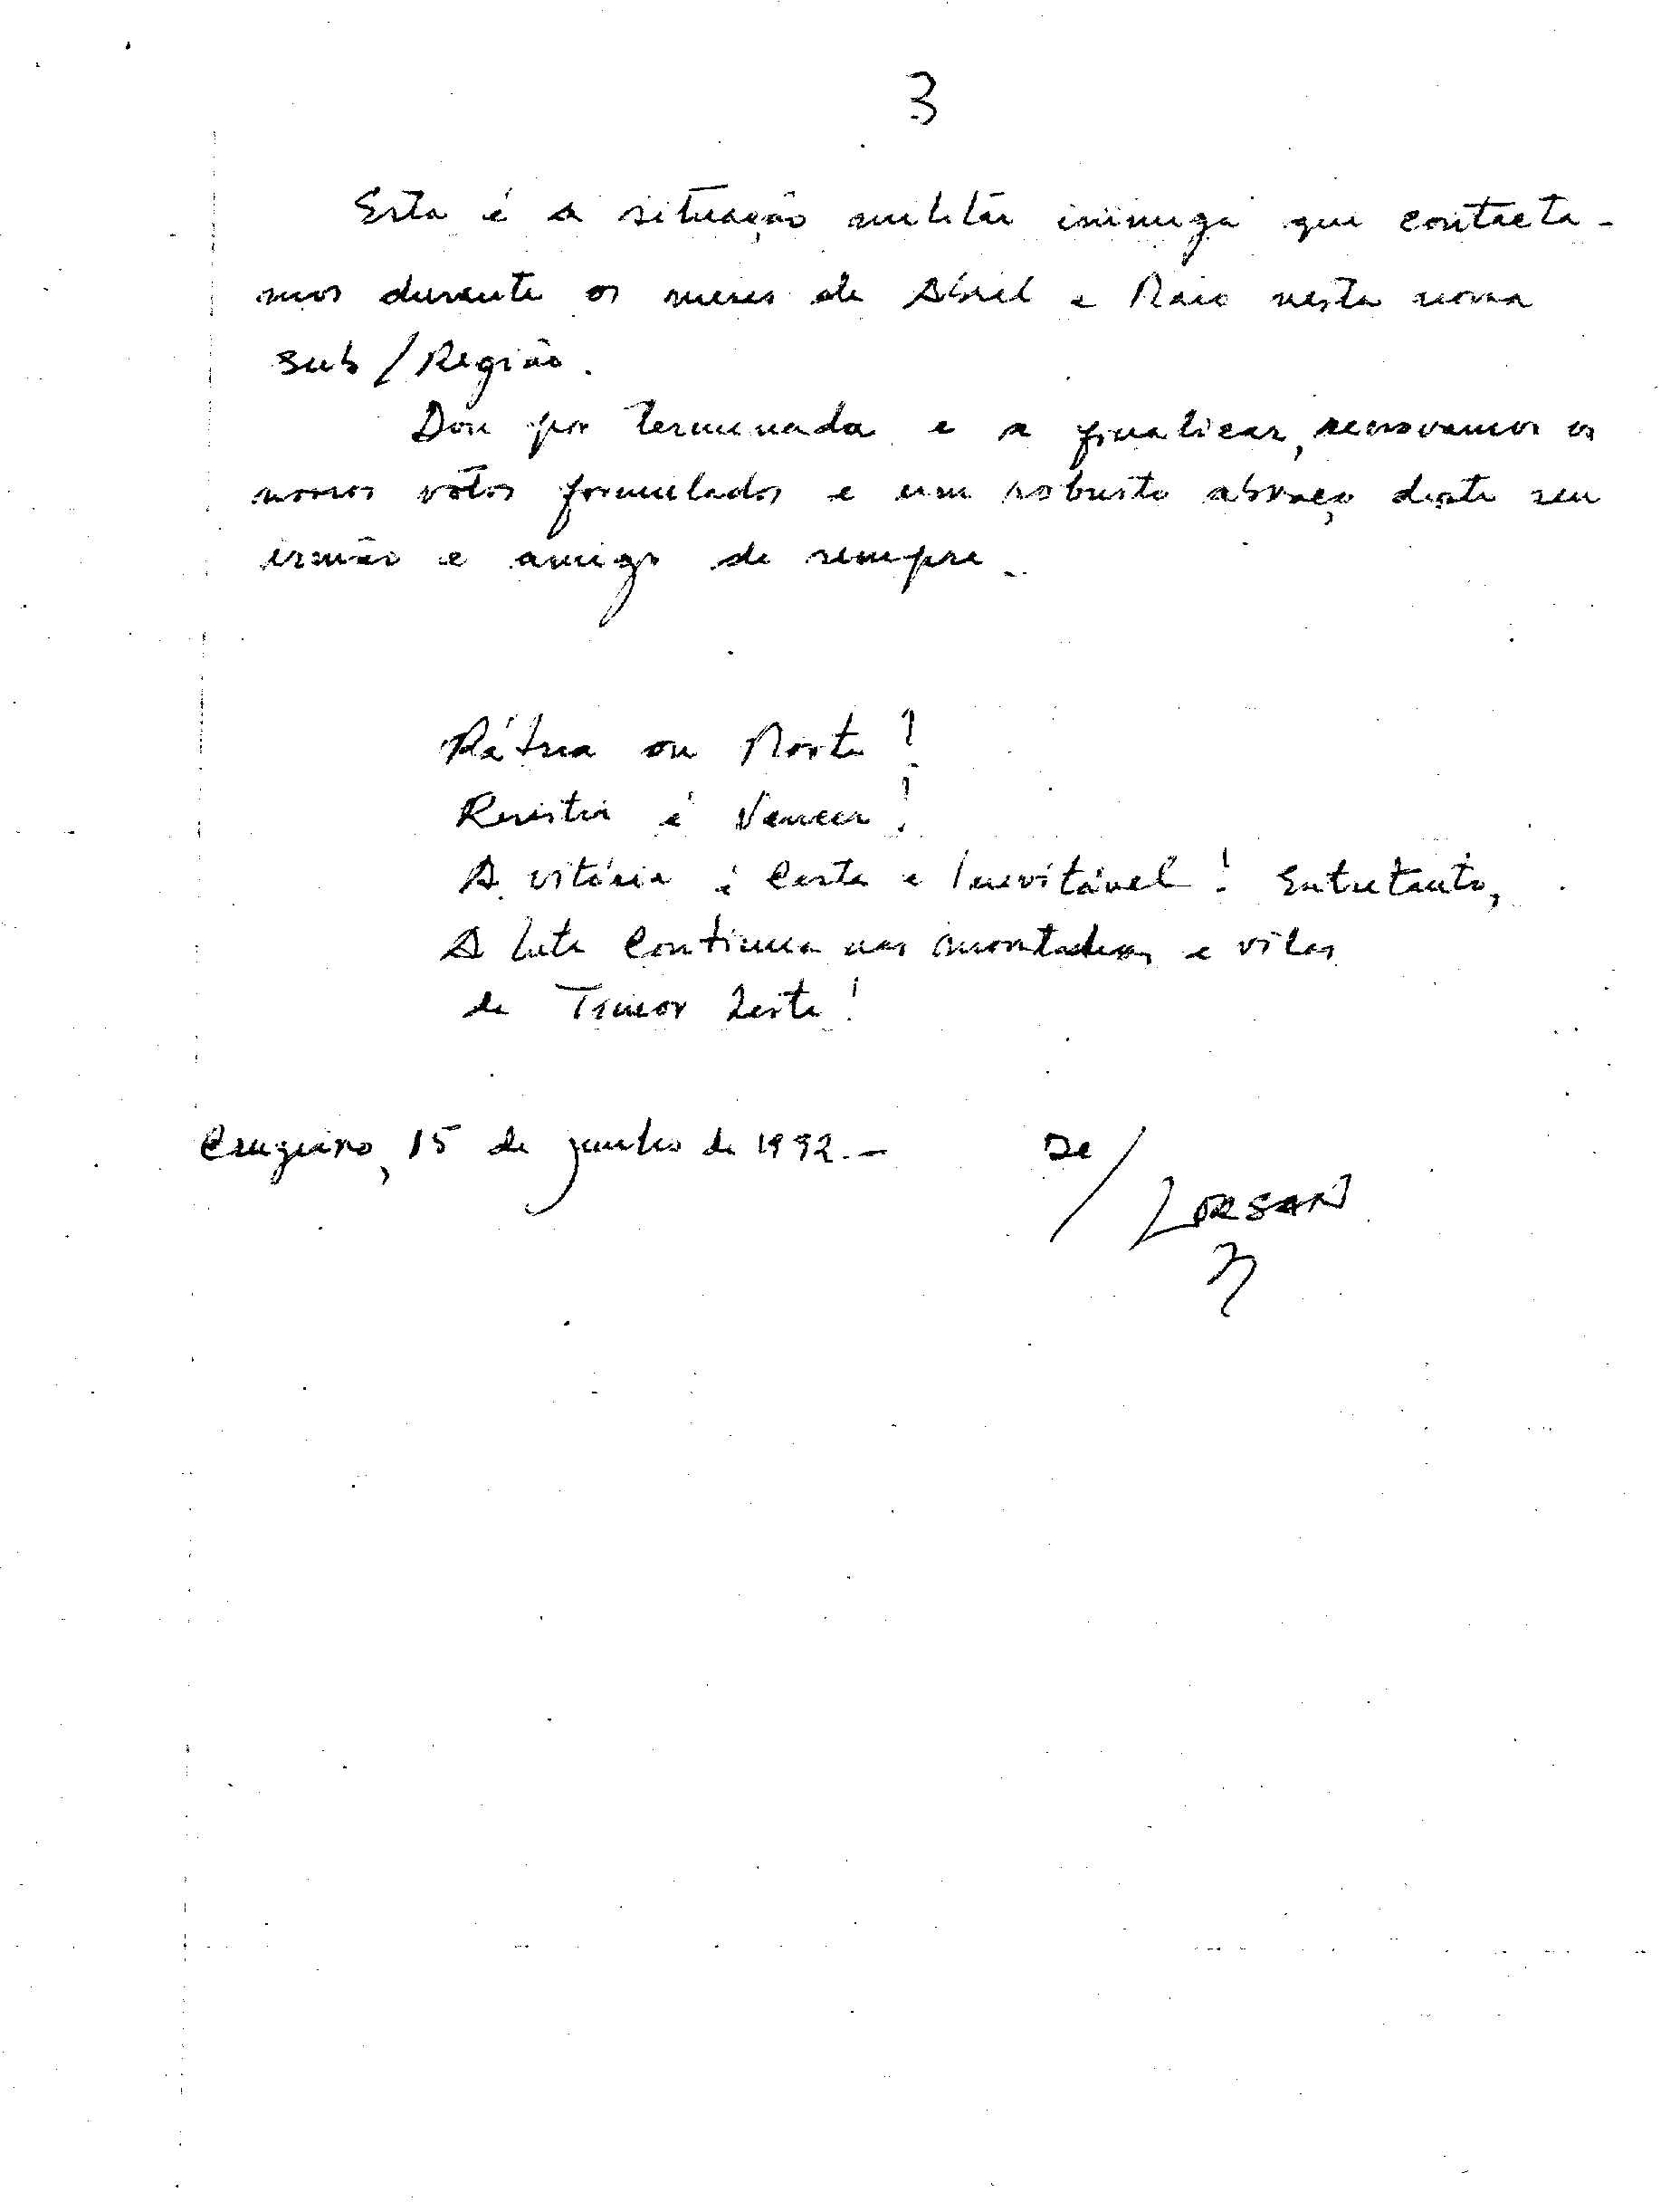 3
Esta é a situação militar inimiga que contacta-
mos durante os meses de Abril e Maio nesta nossa
sub/Região.
Dou por terminada e a finalizar, renovamos os
nossos votos formulados e um robusto abraço deste seu
irmão e amigo de sempre.
Pátria ou Morte!
Resistir é Vencer!
A vitória é Certa e Inevitável! Entretanto,
A Luta Continua nas montanhas e vilas
de Timor Leste!
Cruzeiro, 15 de junho de 1992.-
De/
LORSAN